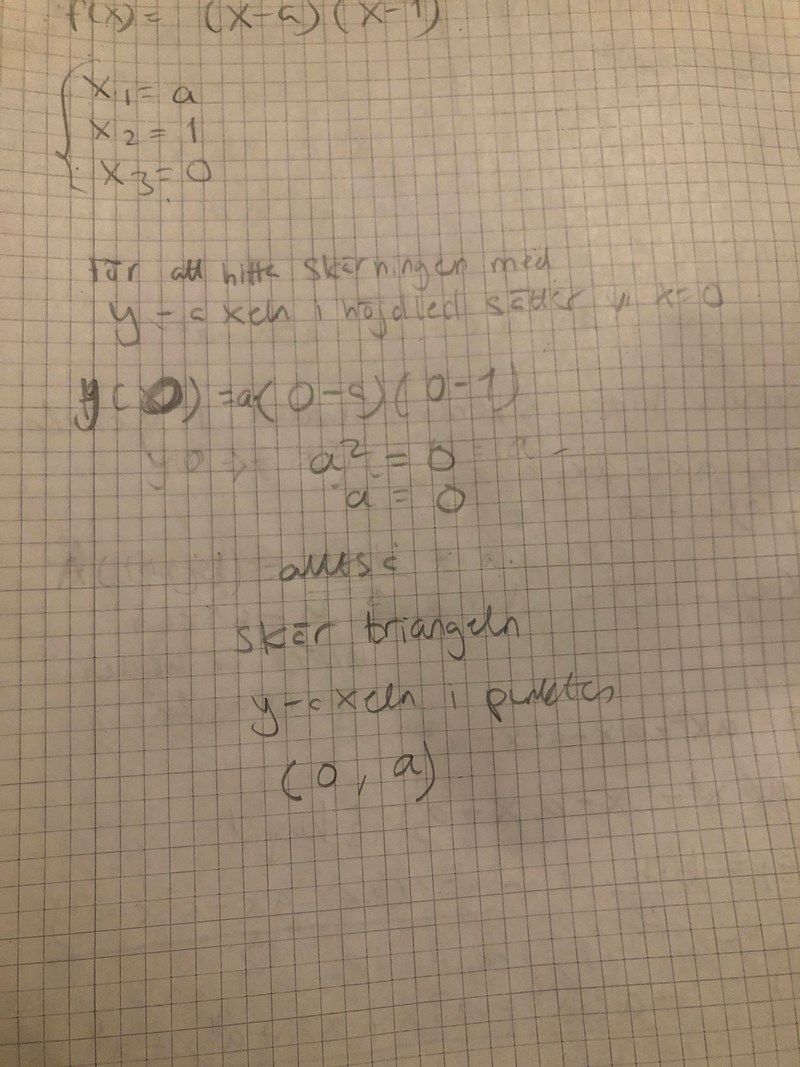 f(x) = (x-a)(x-1)
x₁ = a
x₂ = 1
x₃ = 0
För att hitta skärningen med
y-axeln i höjdled sätter vi x=0
y(0) = a(0-a)(0-1)
a² = 0
a = 0
alltså
skär triangeln
y-axeln i punkten
(0, a)